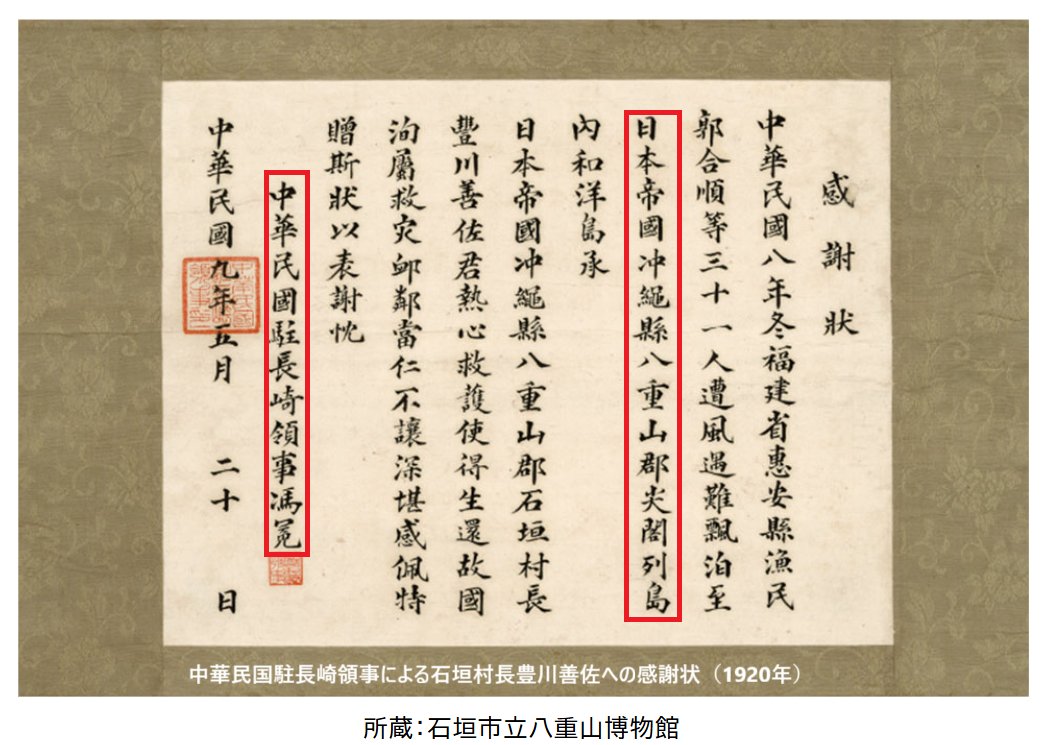 感謝狀
中華民國八年冬福建省惠安縣漁民
郭合順等三十一人遭風遇難飄泊至
日本帝國冲繩縣八重山郡尖閣列島
內和洋島承
日本帝國冲繩縣八重山郡石垣村長
豐川善佐君熱心救護使得生還故國
洵屬救灾䘏鄰當仁不讓深堪感佩特
贈斯狀以表謝忱
中華民國駐長崎領事馮冕
中華民國九年五月二十日
中華民国駐長崎領事による石垣村長豊川善佐への感謝状（1920年）
所蔵：石垣市立八重山博物館